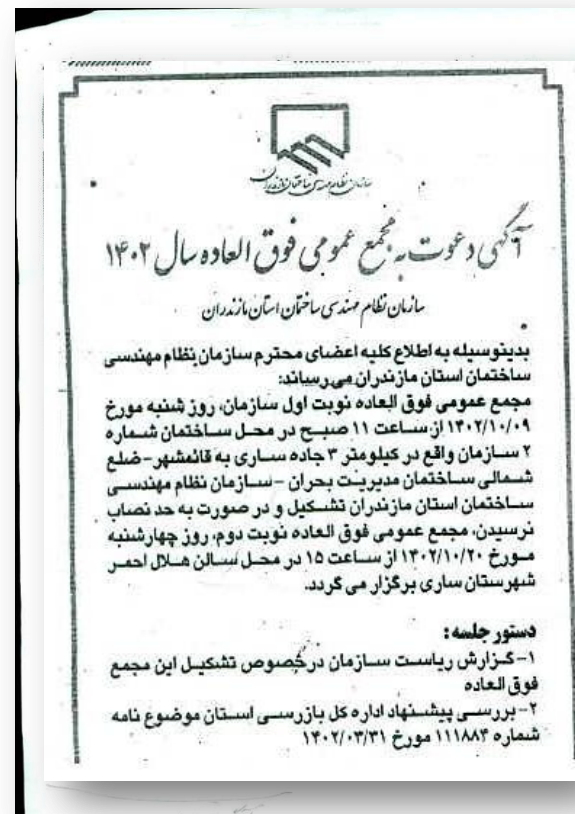 سازمان نظام مهندسی ساختمان مازندران
آگهی دعوت به مجمع عمومی فوق العاده سال ۱۴۰۲
سازمان نظام مهندسی ساختمان استان مازندران
بدینوسیله به اطلاع کلیه اعضای محترم سازمان نظام مهندسی
ساختمان استان مازندران می رساند:
مجمع عمومی فوق العاده نوبت اول سازمان، روز شنبه مورخ
۱۴۰۲/۱۰/۰۹ از ساعت ۱۱ صبح در محل ساختمان شماره
۲ سازمان واقع در کیلومتر ۳ جاده ساری به قائمشهر -ضلع
شمالی ساختمان مدیریت بحران -سازمان نظام مهندسی
ساختمان استان مازندران تشکیل و در صورت به حد نصاب
نرسیدن، مجمع عمومی فوق العاده نوبت دوم، روز چهارشنبه
مورخ ۱۴۰۲/۱۰/۲۰ از ساعت ۱۵ در محل سالن هلال احمر
شهرستان ساری برگزار می گردد.
دستور جلسه:
۱- گزارش ریاست سازمان درخصوص تشکیل این مجمع
فوق العاده
۲- بررسی پیشنهاد اداره کل بازرسی استان موضوع نامه
شماره ۱۱۱۸۸۴ مورخ ۱۴۰۲/۰۳/۳۱